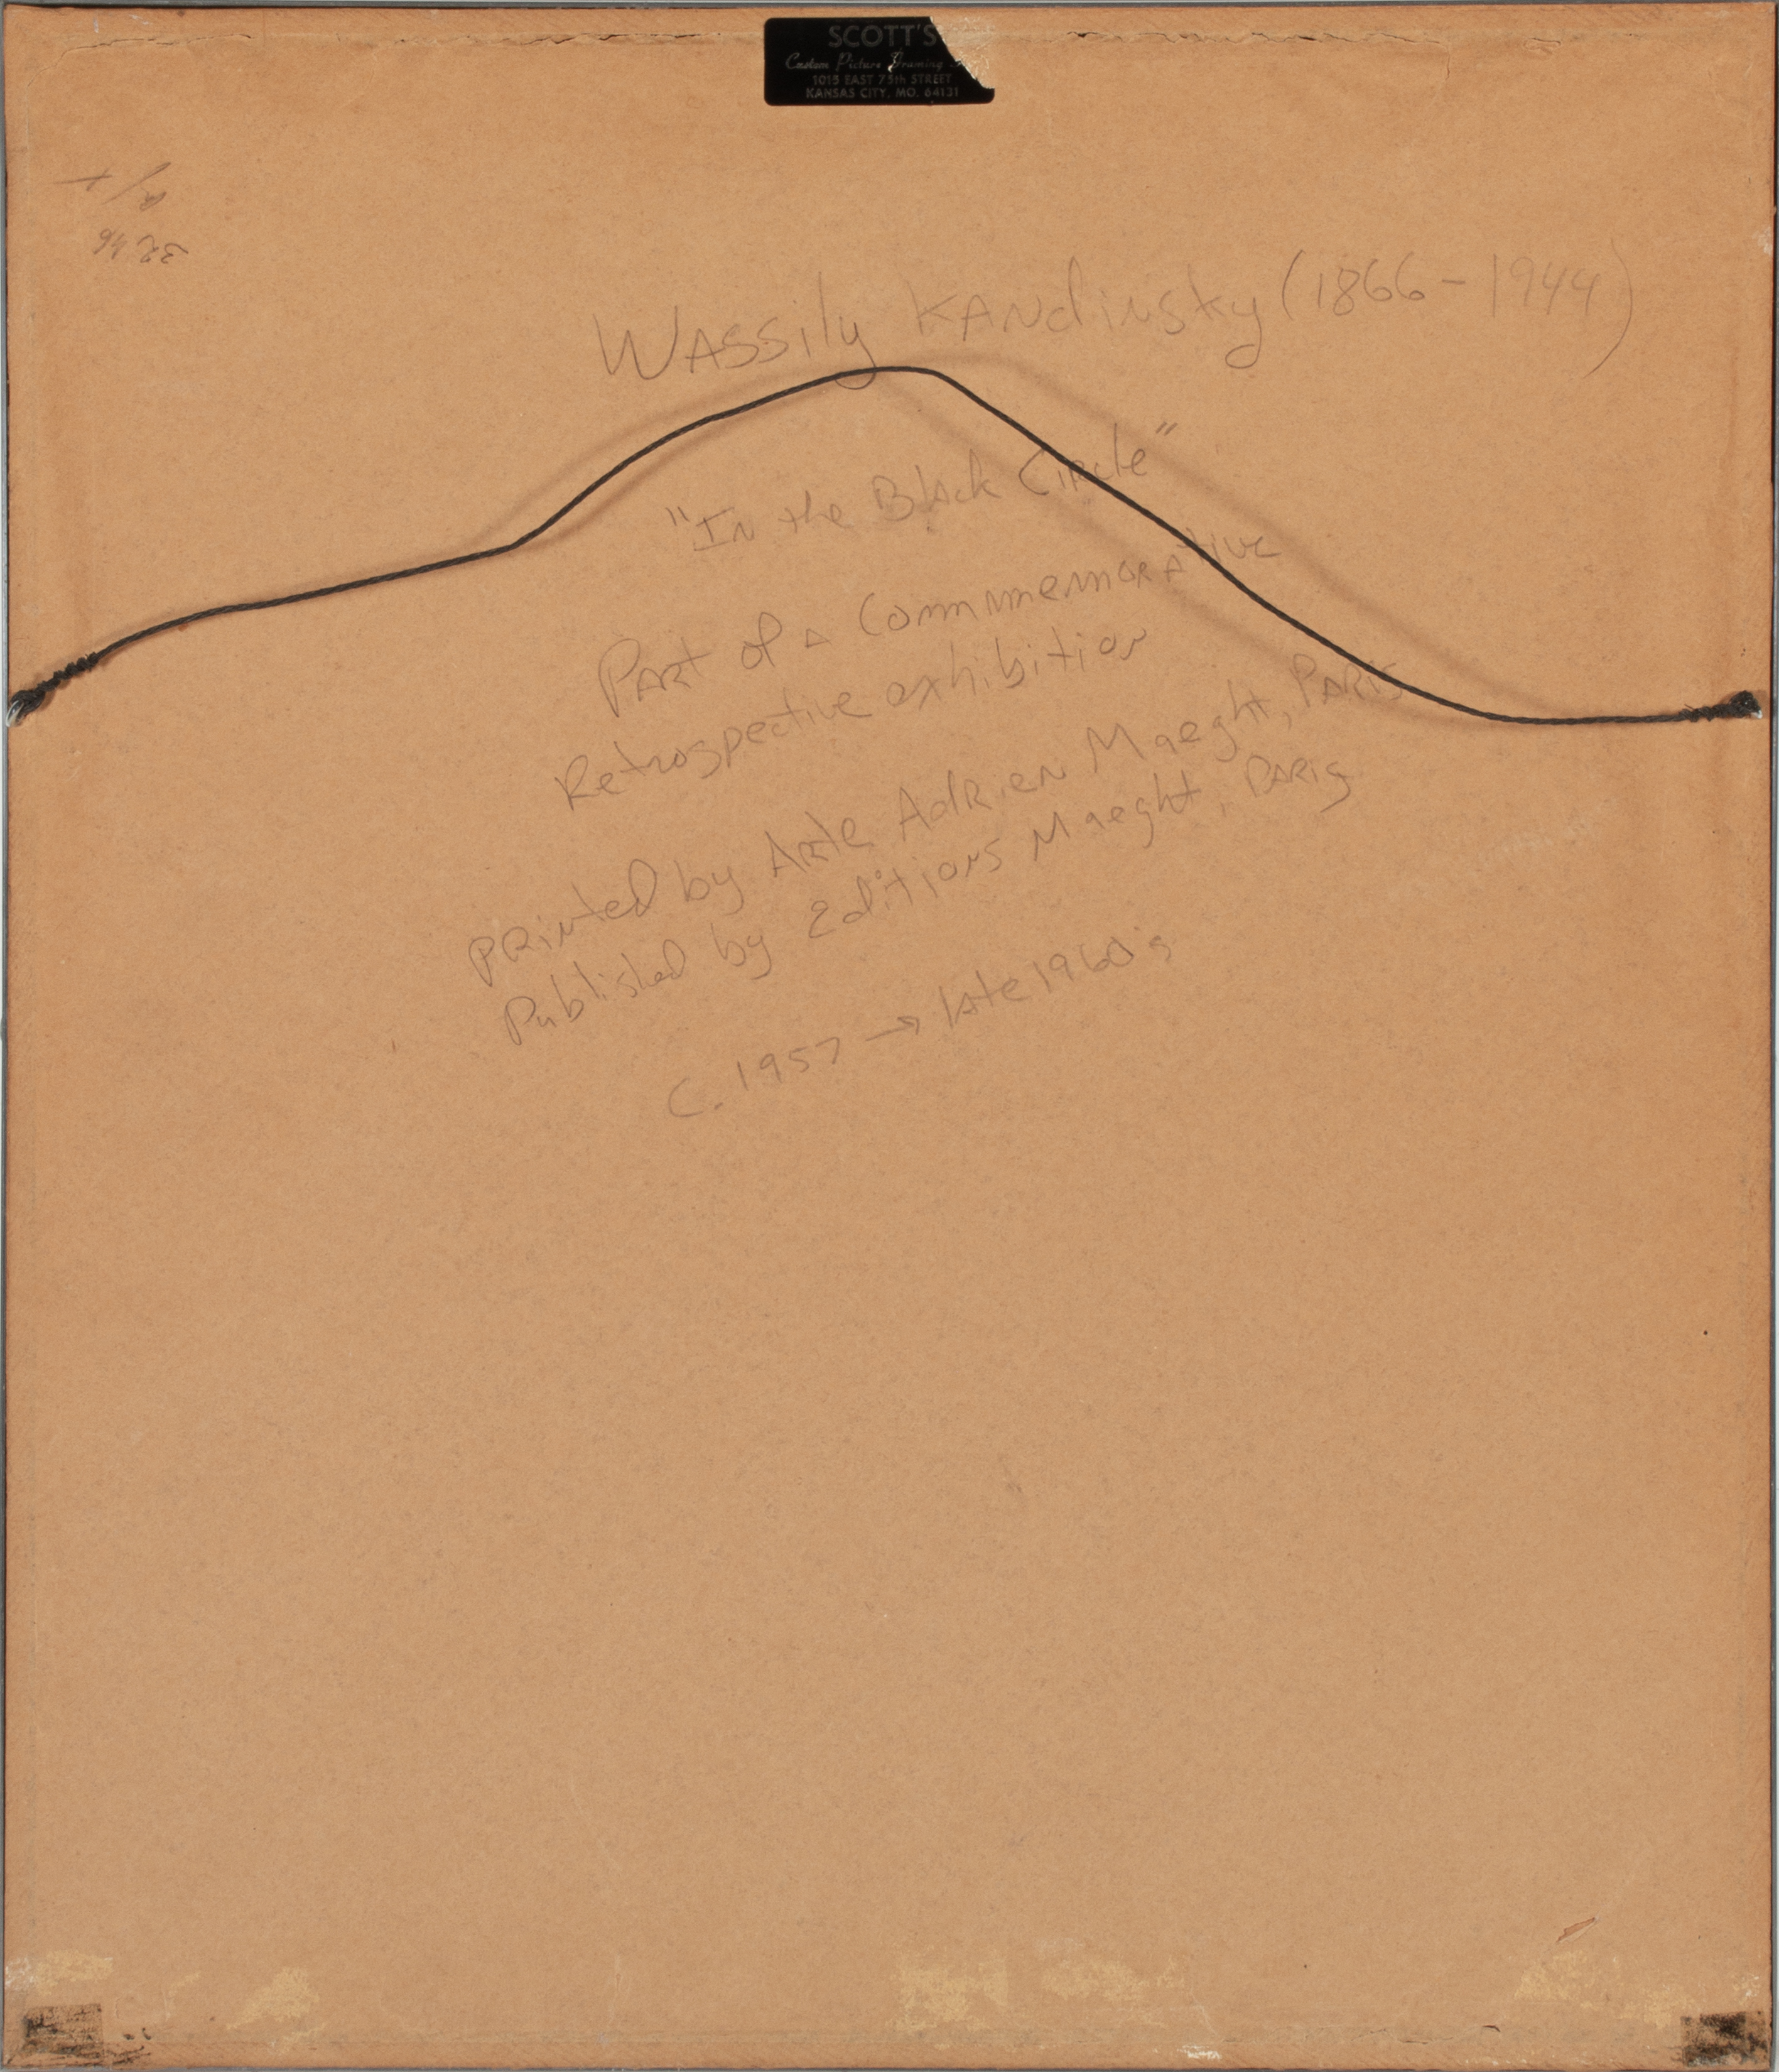 SCOTT'S
Custom Picture Framing
1015 EAST 75th STREET
KANSAS CITY, MO. 64131
32 46
Wassily Kandinsky (1866-1944)
"In the Black Circle"
Part of a Commmemorative
Retrospective exhibition
Printed by Arte Adrien Maeght, Paris
Published by Editions Maeght, Paris
C. 1957 → late 1960's